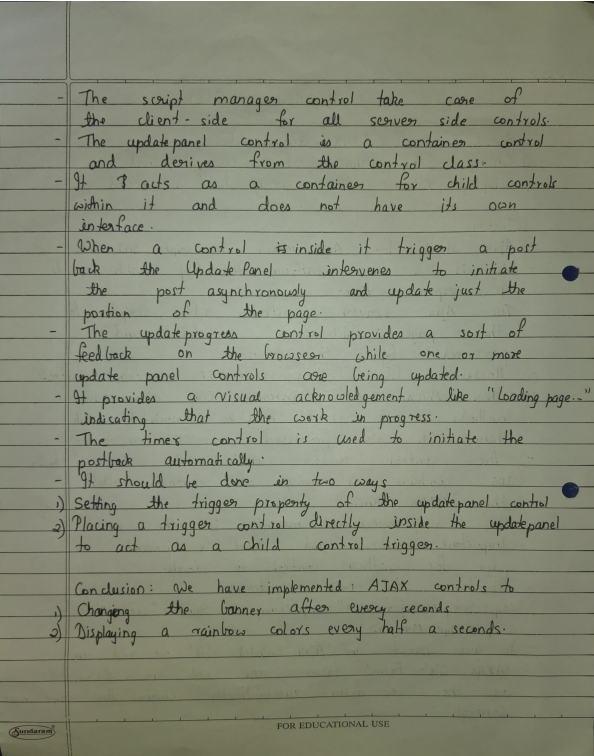 - The script manager control take care of
the client-side for all server side controls.
- The updatepanel control is a container control
and derives from the control class.
- It acts as a container for child controls
within it and does not have its own
interface.
- When a control is inside it trigger a post
back the Update Panel intervenes to initiate
the post asynchronously and update just the
portion of the page.
- The updateprogress control provides a sort of
feedback on the browser while one or more
update panel controls are being updated.
- It provides a visual acknowledgement like "Loading page..."
indicating that the work in progress.
- The timer control is used to initiate the
postback automatically.
- It should be done in two ways
1) Setting the trigger property of the updatepanel control
2) Placing a trigger control directly inside the updatepanel
to act as a child control trigger.
Conclusion: We have implemented AJAX controls to
1) Changing the banner after every seconds
2) Displaying a rainbow colors every half a seconds.
Sundaram
FOR EDUCATIONAL USE